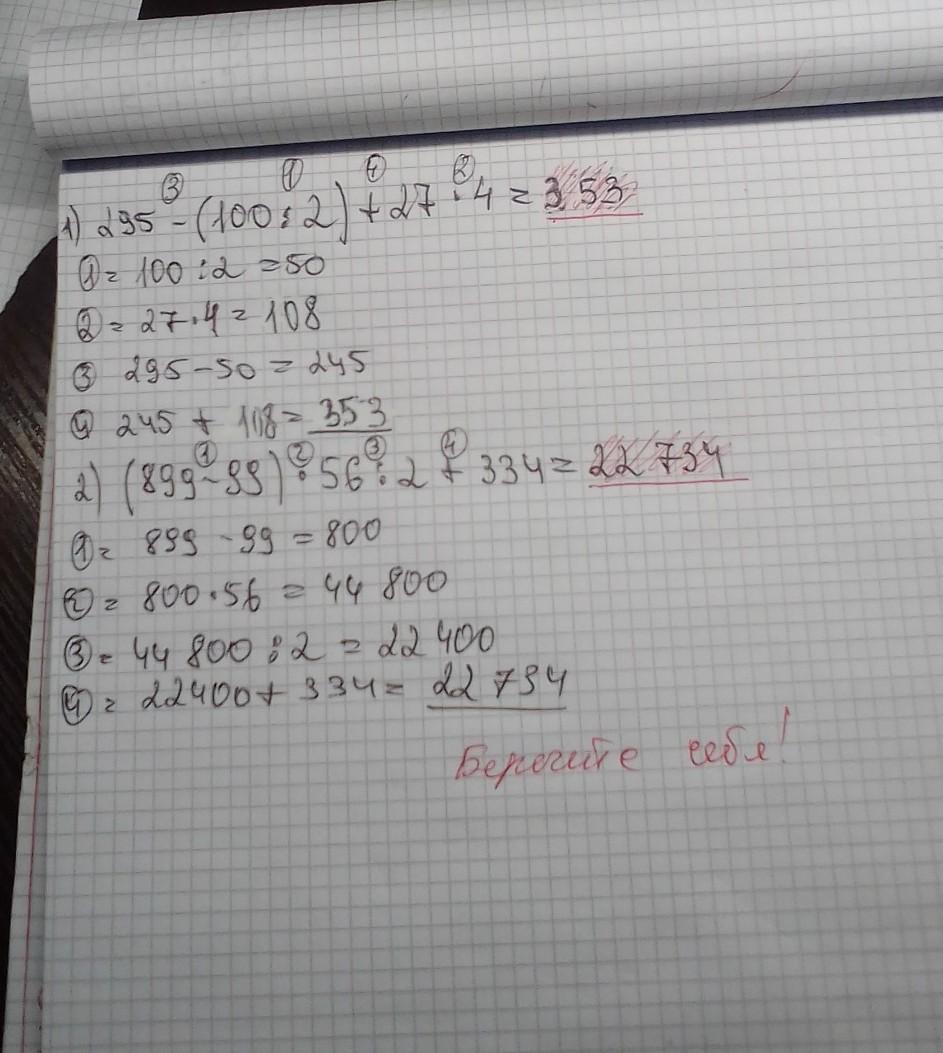 ③ ① ④ ②
1) 295 - (100 : 2) + 27 · 4 = 353
① = 100 : 2 = 50
② = 27 · 4 = 108
③ 295 - 50 = 245
④ 245 + 108 = 353
① ② ③ ④
2) (899 - 99) · 56 : 2 + 334 = 22 734
① = 899 - 99 = 800
② = 800 · 56 = 44 800
③ = 44 800 : 2 = 22 400
④ = 22400 + 334 = 22 734
Берегите себя!